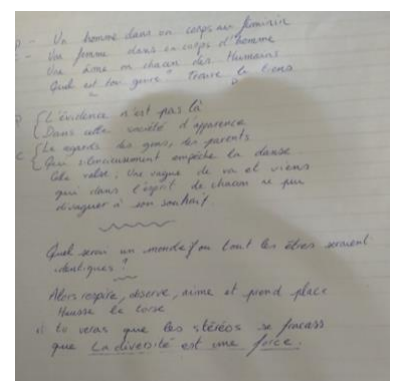 - Un homme dans un corps au féminin
- Une femme dans un corps d'homme
Une âme en chacun des Humains
Quel est ton genre ? Trouve le tiens
L'évidence n'est pas là
Dans cette société d'apparence
Le regards des gens, des parents
Qui silencieusement empêche la danse
Cette valse, Une vague de va et viens
qui dans l'esprit de chacun ne peu
divaguer à son souhait.
Quel serai un monde où tout les êtres seraient
identiques ?
Alors respire, observe, aime et prend place
Hausse le torse
tu veras que les stéréos se fracass
que La diversité est une force.